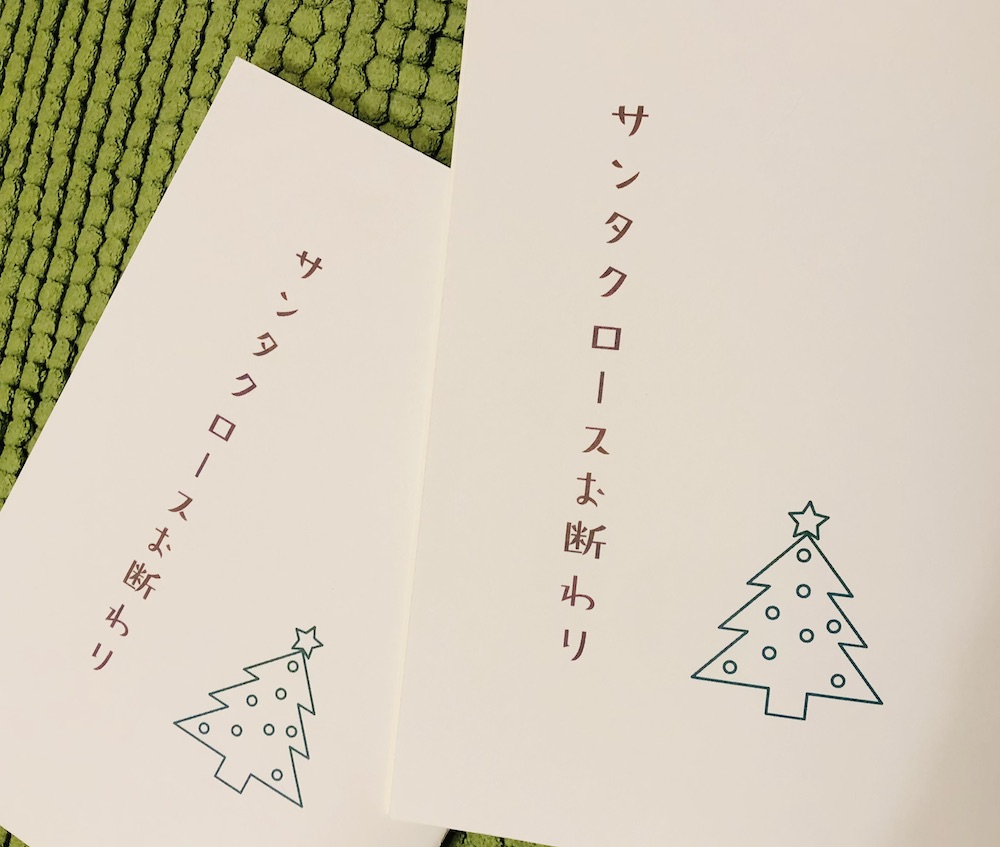 サンタクロースお断わり
サンタクロースお断わり